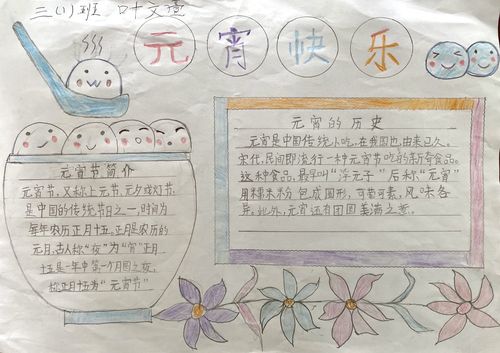 三(1)班 叶文
元宵快乐
元宵节简介
元宵节,又称上元节,元夕或灯节,
是中国的传统节日之一,时间为
每年农历正月十五,正月是农历的
元月,古人称“夜”为“宵”正月
十五是一年中第一个月圆之夜,
故正月十五为“元宵节”
元宵的历史
元宵是中国传统小吃,在我国也由来已久。
宋代,民间即流行一种元宵节吃的新奇食品。
这种食品,最早叫“浮元子”后称“元宵”
用糯米粉包成圆形,可荤可素,风味各
异。此外,元宵还有团圆美满之意。